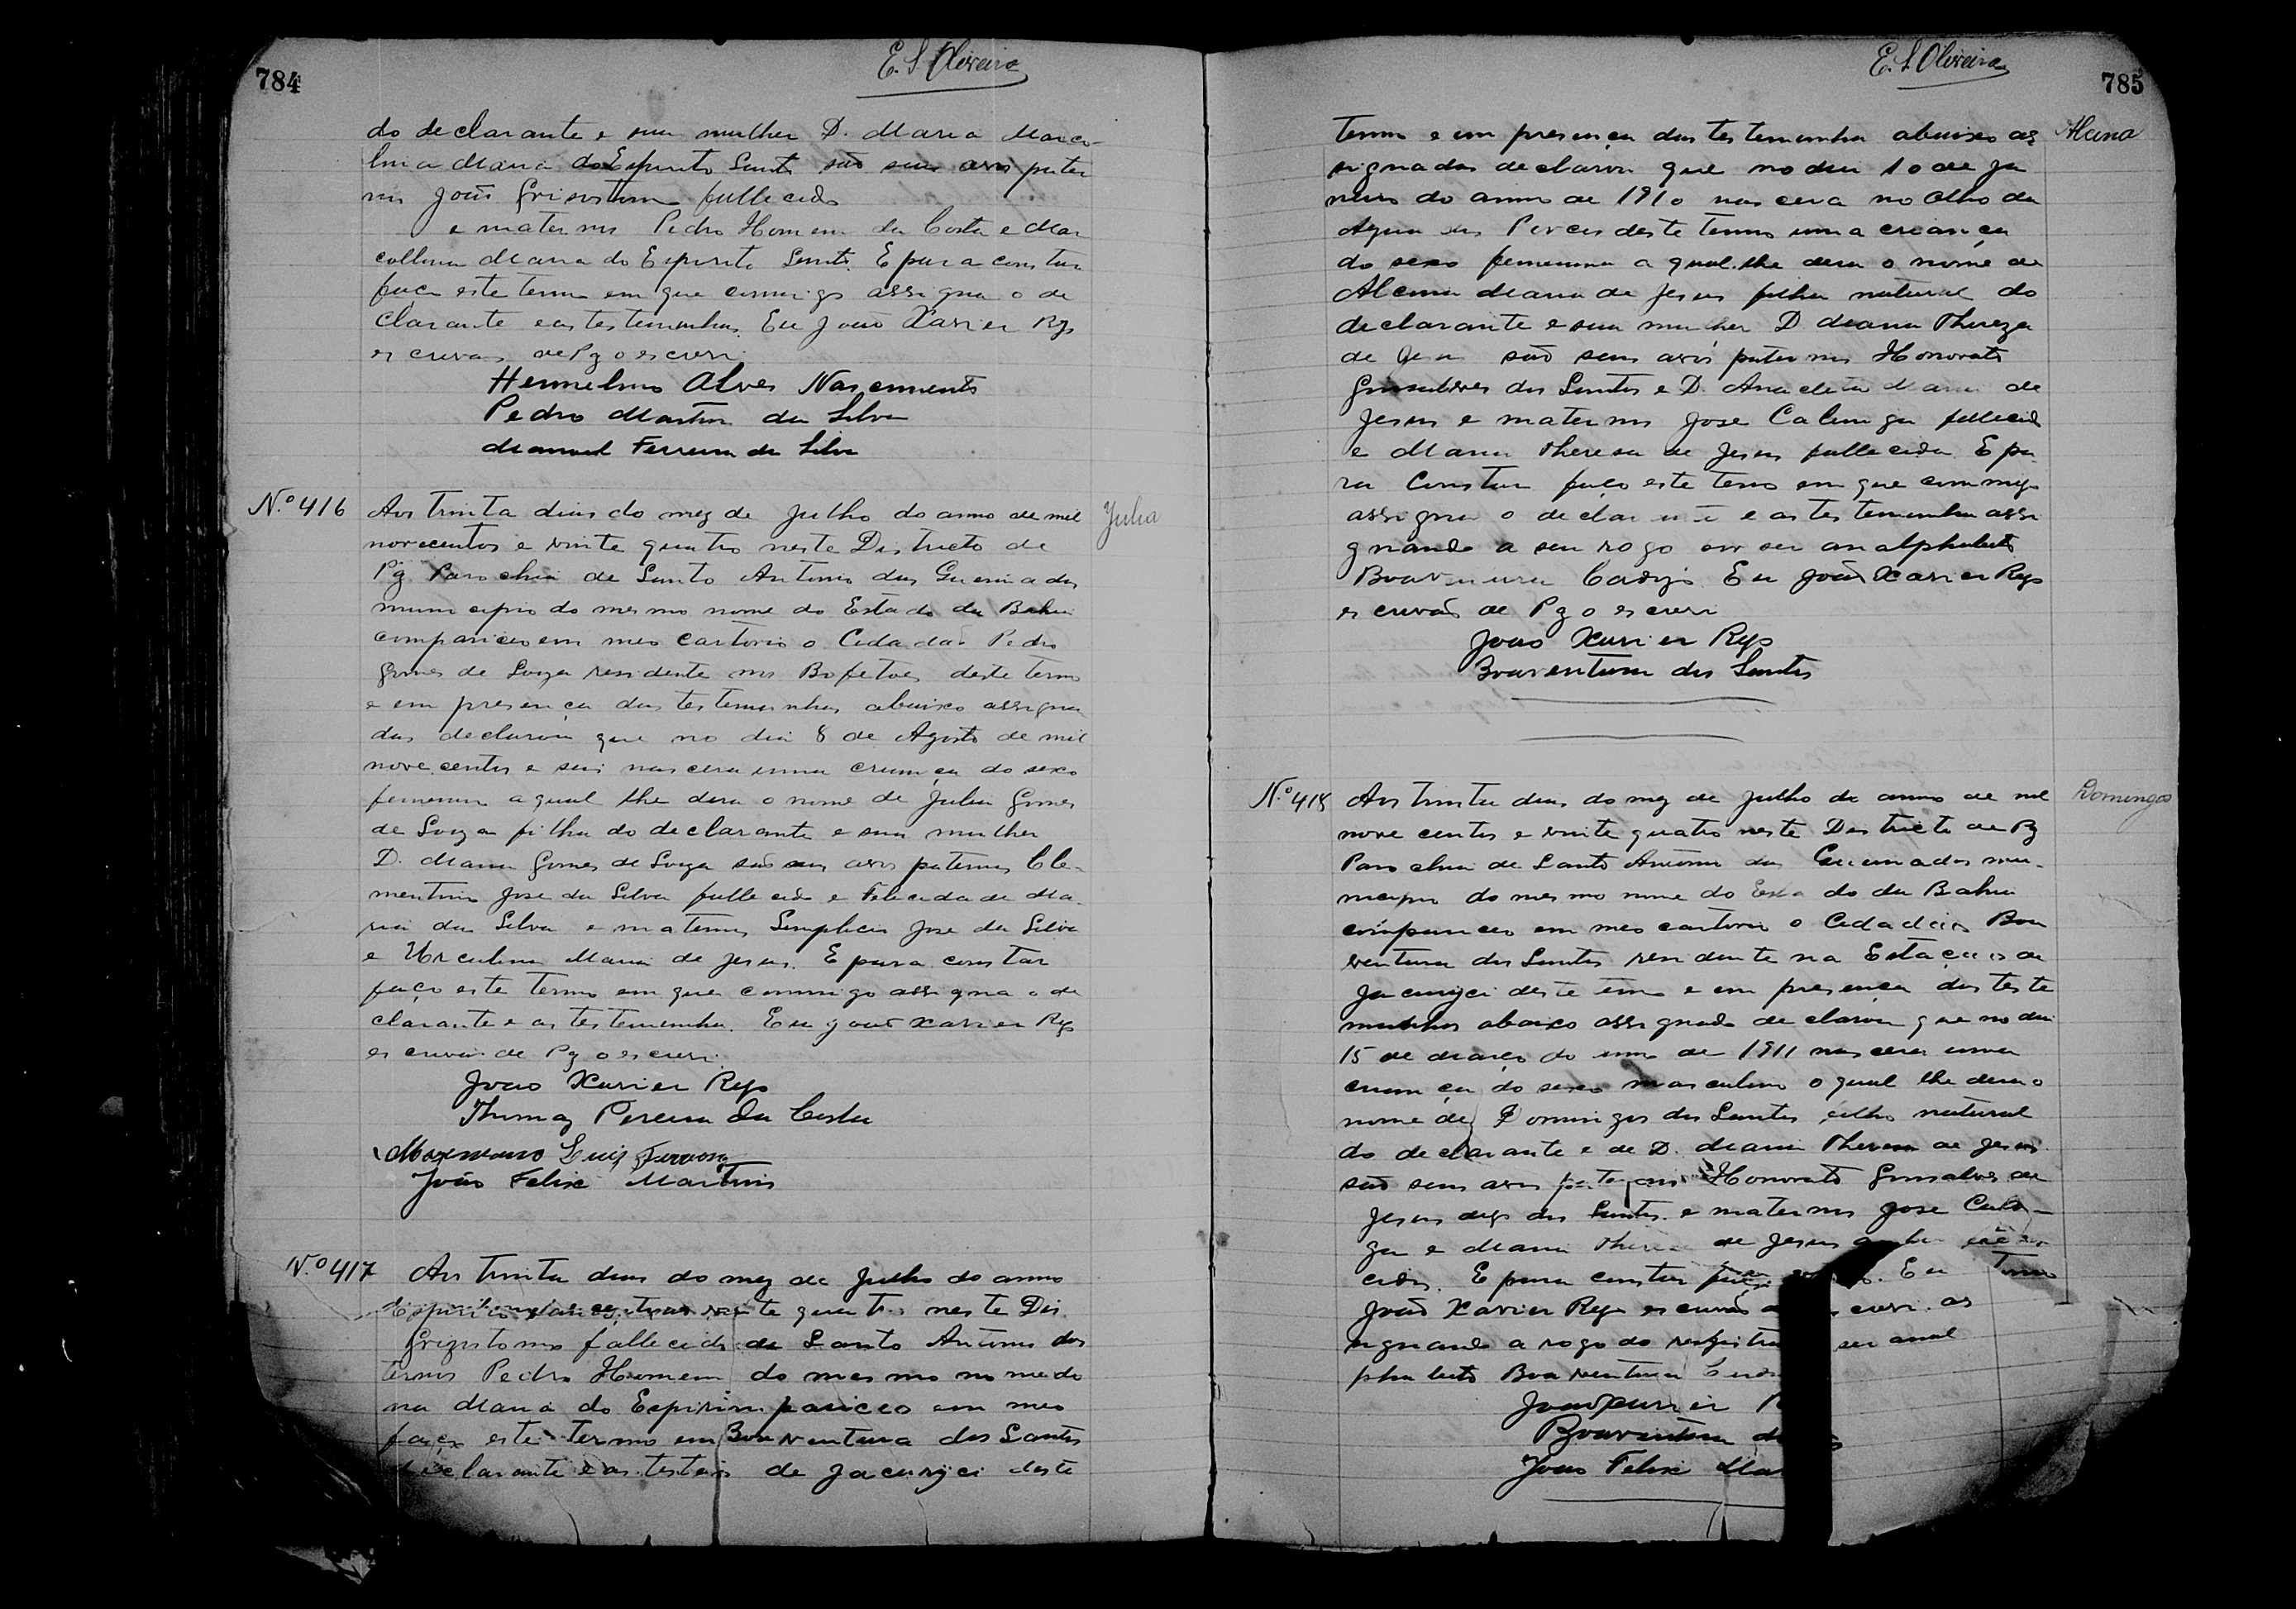 784
E. S. Oliveira
do declarante e sua mulher D. Maria Marco-
lina Maria do Espirito Santo são seus avos pater
nos João Grisostimo fallecido
e maternos Pedro Homem da Costa e Mar
collina Maria do Espirito Santo. E para constar
faço este termo em que comigo assigna o de
clarante e as testemunhas. Eu João Xavier Rys
escrivão de Pz o escrevi
Hermelino Alves Nascimento
Pedro Martins da Silva
Manuel Ferreira da Silva
Nº 416
Julia
Aos trinta dias do mez de Julho do anno de mil
novecentos e vinte quatro neste Districto de
Pz Parochia de Santo Antonio das Queimadas
municipio do mesmo nome do Estado da Bahia
compariceo em meo cartorio o Cidadão Pedro
Gomes de Souza residente nos Bofetoes deste termo
e em presença das testemunhas abaixo assigna
das declarou que no dia 8 de Agosto de mil
novecentos e seis nascera uma creança do sexo
femenino a qual lhe dera o nome de Julia Gomes
de Souza filha do declarante e sua mulher
D. Maria Gomes de Souza são seus avos paternos Cle-
mentino Jose da Silva fallecido e Felicidade Ma-
ria da Silva e maternos Simplicio Jose da Silva
e Urculina Maria de Jesus. E para constar
faço este termo em que commigo assigna o de
clarante e as testemunhas. Eu João Xavier Rys
escrivão de Pz o escrevi
Joao Xavier Rys
Thomaz Pereira da Costa
Luiz
João Felix Martins
Nº 417
Aos trinta dias do mez de Julho do anno
vinte quatro neste Dis
Grizostomo fallecido de Santo Antonio das
ternos Pedro Homem do mesmo nome do
na Maria do Espirim pariceo em meo
faço este termo em Boaventura dos Santos
declarante e as testem de Jacuryci deste
E. S. Oliveira
785
Alcina
termo e em presença das testemunhas abaixo as
signadas declarou que no dia 10 de Ja
neiro do anno de 1910 nascera no Olho da
Agua das deste termo uma creança
do sexo femenino a qual lhe dera o nome de
Alcina Maria de Jesus filha natural do
declarante e sua mulher D. Maria Thereza
de Jesus são seus avós paternos Honorato
Gonsalves dos Santos e D. Anacleta Maria de
Jesus e maternos Jose Calunga fallecido
e Maria Theresa de Jesus fallecida. E pa
ra constar faço este termo em que commigo
assigna o declarante e as testemunhas assi
gnando a seu rogo por ser analphabeto
Boaventura Eu João Xavier Rys
escrivão de Pz o escrevi
Joao Xavier Rys
Boaventura dos Santos
Nº 418
Domingos
Aos trinta dias do mez de Julho do anno de mil
novecentos e vinte quatro neste Destricto de Pz
Parochia de Santo Antonio das Queimadas mu-
nicipio do mesmo nome do Estado da Bahia
compariceo em meo cartorio o Cidadão Boa
ventura dos Santos residente na Estação de
Jacuryci deste termo e em presença das teste
munhas abaixo assignada declarou que no dia
15 de Março do anno de 1911 nascera uma
creança do sexo masculino o qual lhe dera o
nome de Domingos dos Santos filho natural
do declarante e de D. Maria Theresa de Jesus
são seus avos paternos Honorato Gonsalves de
Jesus digo dos Santos e maternos Jose Calun-
ga e Maria Theresa de Jesus
cidos. E para constar Eu
João Xavier Rys escrivão as
signando a rogo do ser anal
phabeto Boaventura
Joao Xavier
Boaventura
Joao Felix Mar